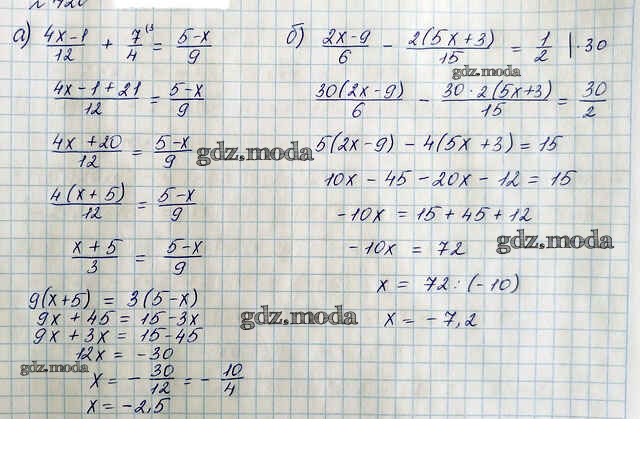 № 420
а) (4x-1)/12 + 7/4 (3 = (5-x)/9
(4x-1+21)/12 = (5-x)/9
(4x+20)/12 = (5-x)/9
4(x+5)/12 = (5-x)/9
(x+5)/3 = (5-x)/9
9(x+5) = 3(5-x)
9x + 45 = 15-3x
9x + 3x = 15-45
12x = -30
x = - 30/12 = - 10/4
x = -2,5
б) (2x-9)/6 - 2(5x+3)/15 = 1/2 |·30
30(2x-9)/6 - 30·2(5x+3)/15 = 30/2
5(2x-9) - 4(5x+3) = 15
10x - 45 - 20x - 12 = 15
-10x = 15 + 45 + 12
-10x = 72
x = 72 : (-10)
x = -7,2
gdz.moda
gdz.moda
gdz.moda
gdz.moda
gdz.moda